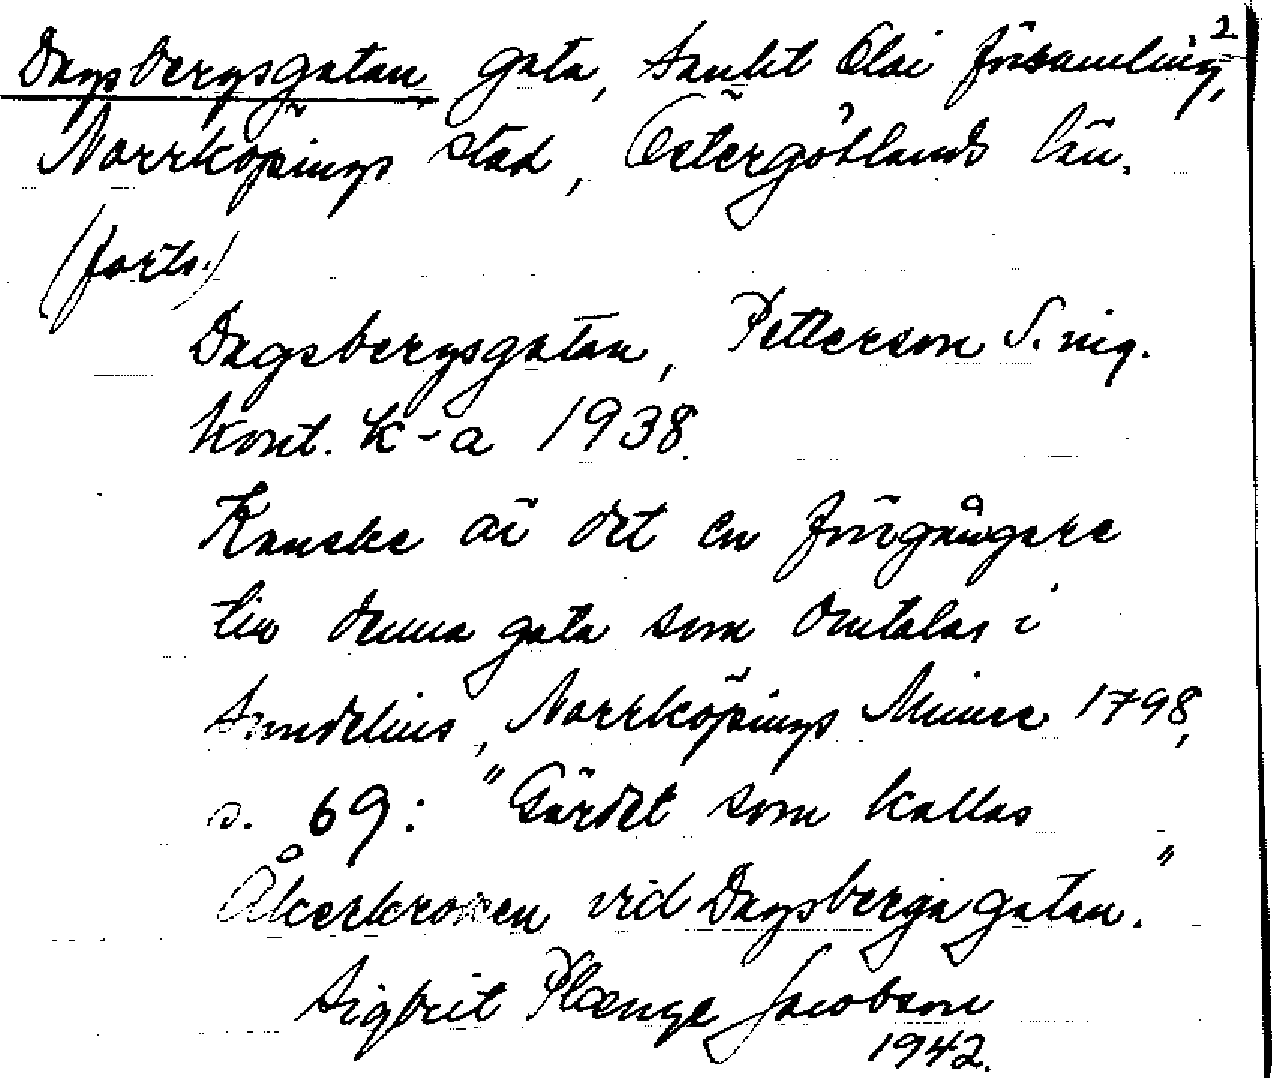 Dagsbergsgatan gata, Sankt Olai församling, 2
Norrköpings stad, Östergötlands län.
(forts.)
Dagsbergsgatan, Petterson S. nig.
Kont. K-a 1938.
Kanske är det en föregångare
till denna gata som omtalas i
Sundelius, Norrköpings Minne 1798,
s. 69: "Gärdet som kallas
Åkerkroken vid Dagsberga gatan."
Sigbrit Plænge Jacobson
1942.